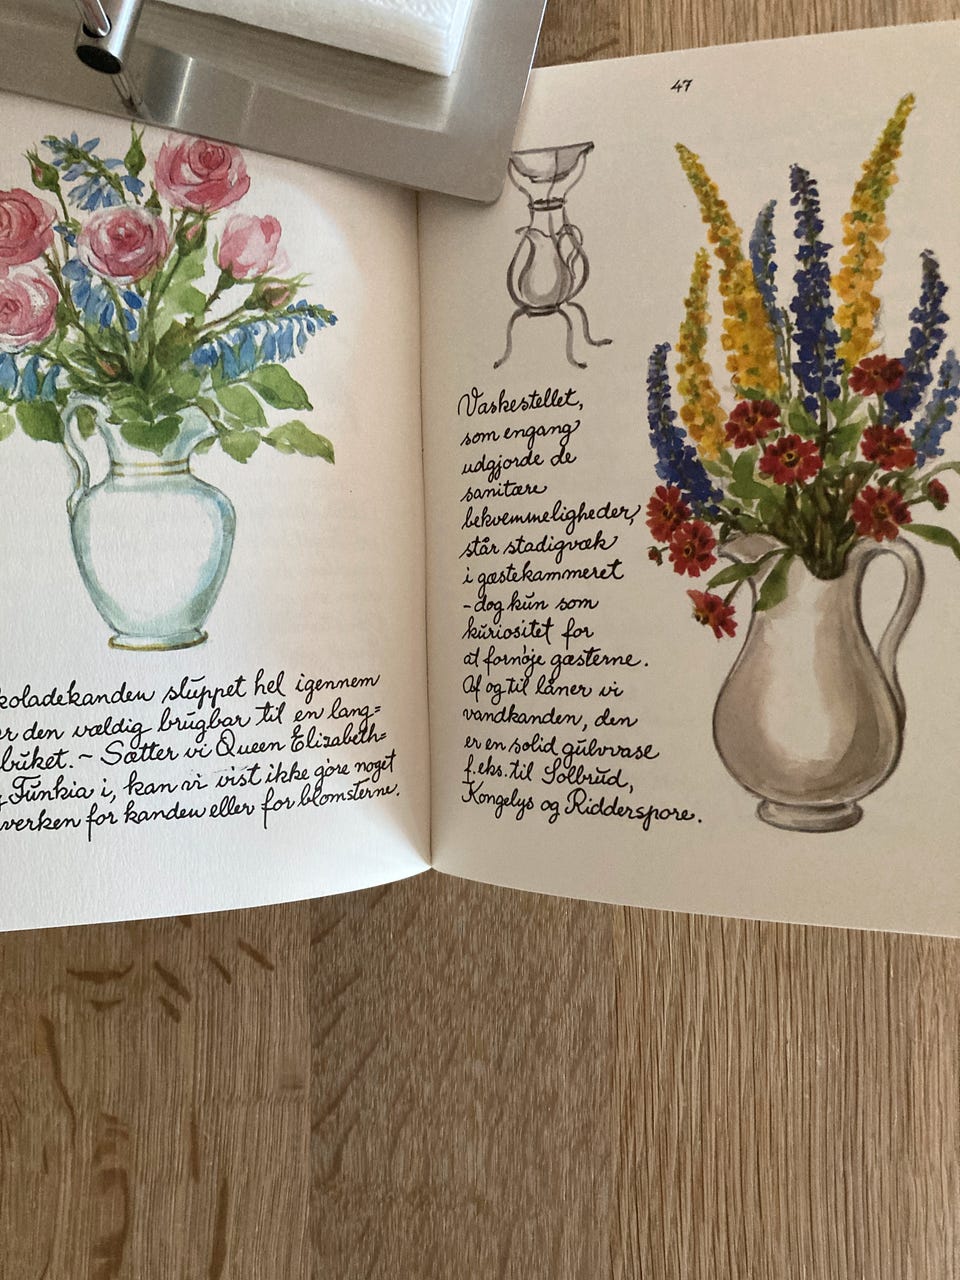 koladekanden sluppet hel igennem
er den vældig brugbar til en lang=
buket. ~ Sætter vi Queen Elizabeth=
Funkia i, kan vi vist ikke gøre noget
verken for kanden eller for blomsterne.
47
Vaskestellet,
som engang
udgjorde de
sanitære
bekvemmeligheder,
står stadigvæk
i gæstekammeret
- dog kun som
kuriositet for
at fornøje gæsterne.
Af og til låner vi
vandkanden, den
er en solid gulvvase
f.eks. til Solbrud,
Kongelys og Ridderspore.